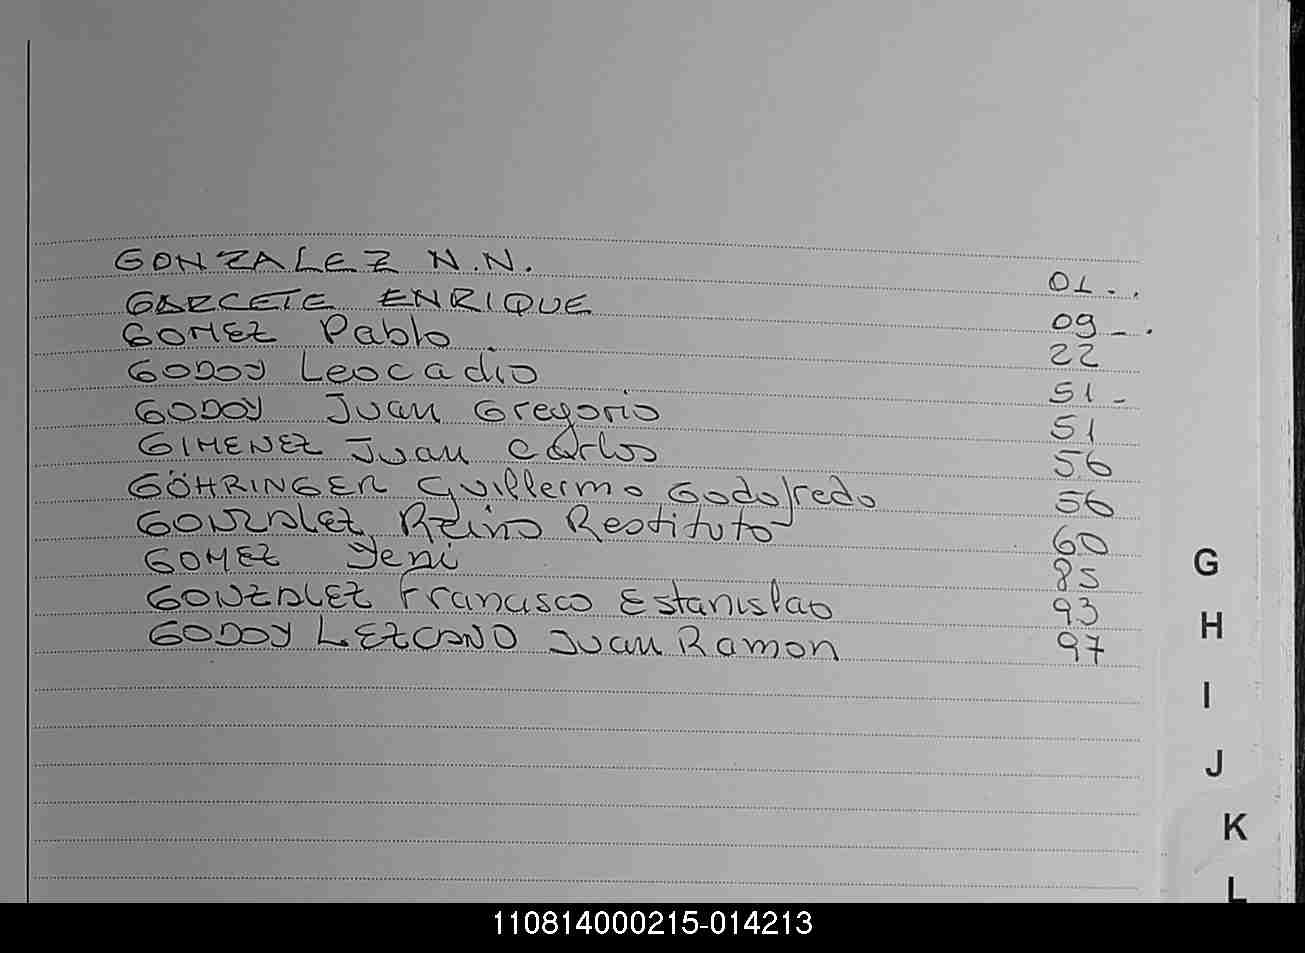 GONZALEZ N.N. 01..
GARCETE ENRIQUE 09-.
GOMEZ Pablo 22
GODOY Leocadio 51-
GODOY Juan Gregorio 51
GIMENEZ Juan Carlos 56
GÖHRINGER Guillermo Godofredo 56
GONZALEZ Restituto 60
GOMEZ Yeni 85
GONZALEZ Francisco Estanislao 93
GODOY LEZCANO Juan Ramon 97
G
H
I
J
K
L
110814000215-014213